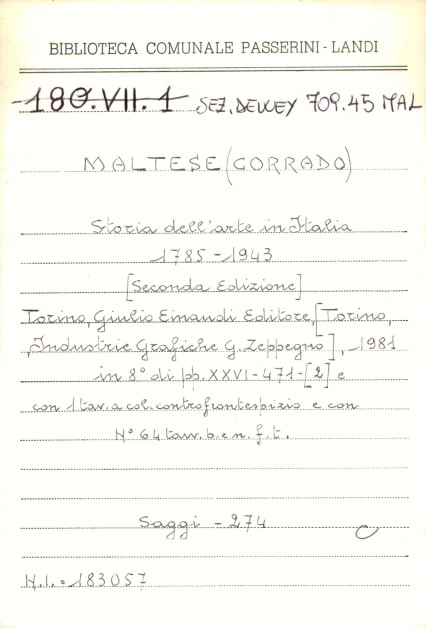 BIBLIOTECA COMUNALE PASSERINI - LANDI
180.VII.1 SEZ. DEWEY 709.45 MAL
MALTESE (CORRADO)
Storia dell'arte in Italia
1785-1943
[Seconda Edizione]
Torino, Giulio Einaudi Editore, [Torino,
Industrie Grafiche G. Zeppegno], 1981
in 8° di pp. XXVI-471-[2] e
con 1 tav. a col. controfrontespizio e con
N° 64 tavv. b. e n. f. t.
Saggi - 274
C
N.I. = 183057